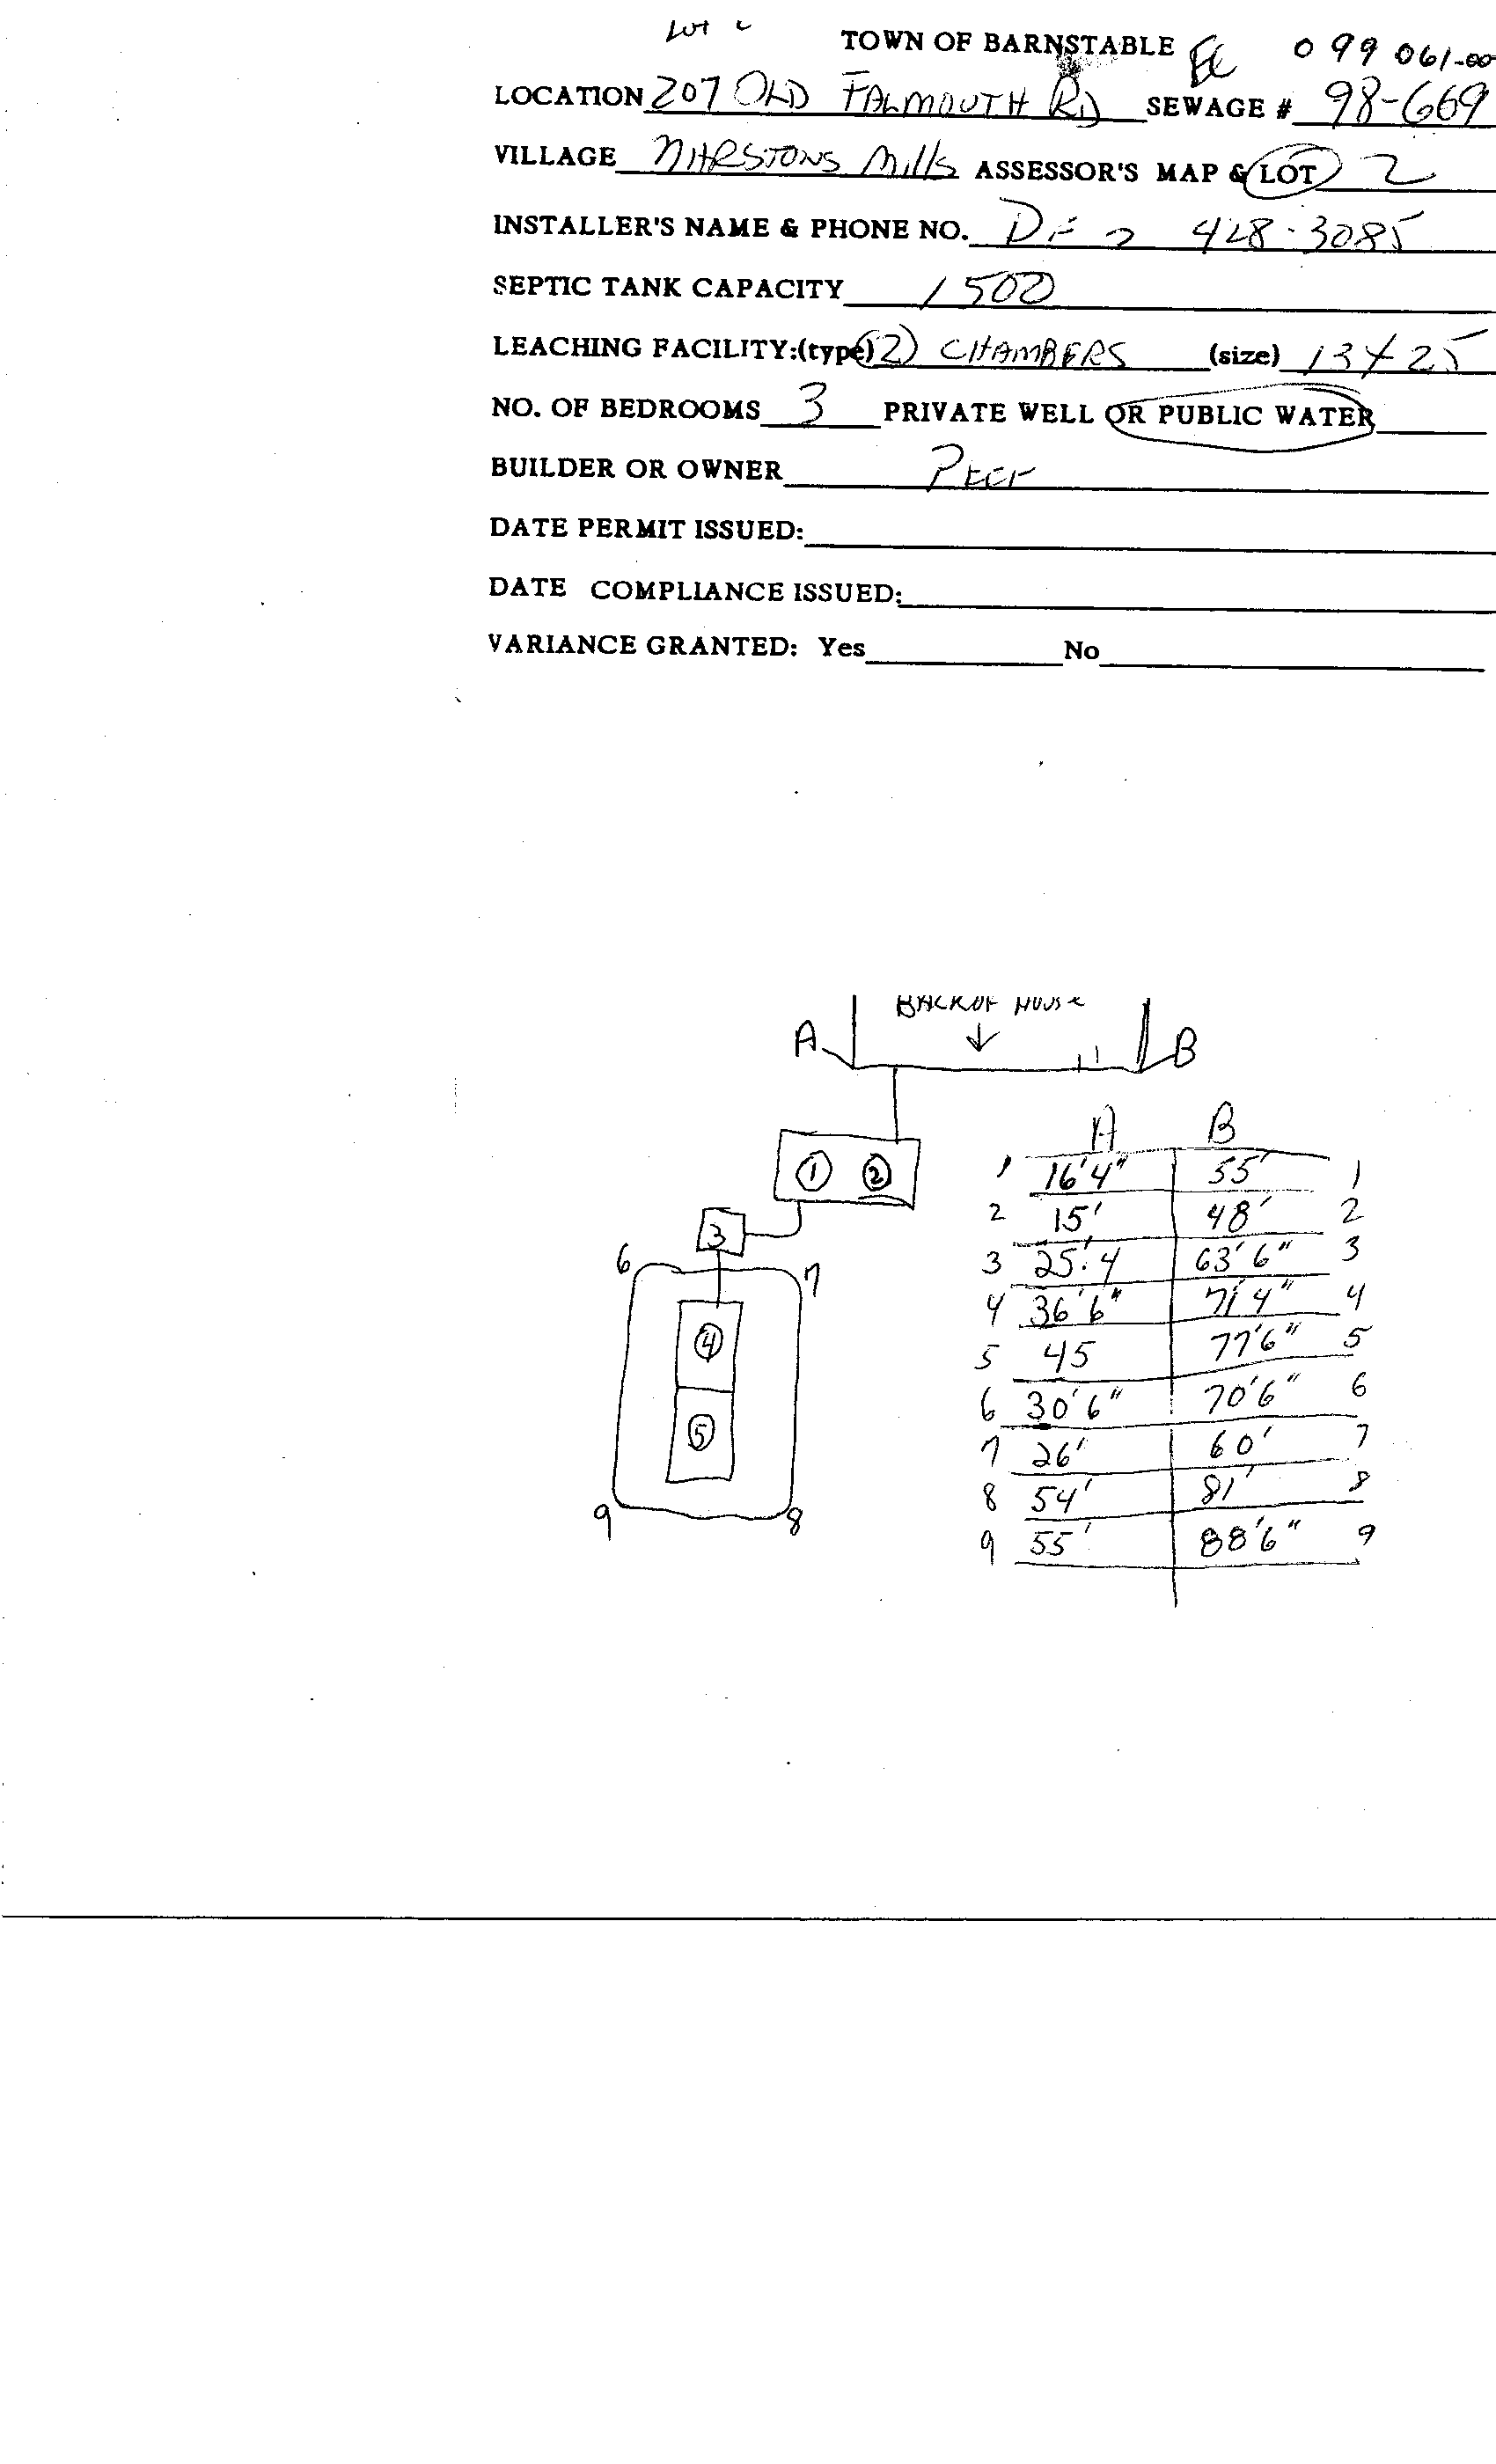 Lot
TOWN OF BARNSTABLE 099 061-00
LOCATION 207 OLD FALMOUTH RD SEWAGE # 98-669
VILLAGE MARSTONS Mills ASSESSOR'S MAP & LOT 2
INSTALLER'S NAME & PHONE NO. 428-3085
SEPTIC TANK CAPACITY 1500
LEACHING FACILITY:(type) (2) CHAMBERS (size) 13 X 25
NO. OF BEDROOMS 3 PRIVATE WELL OR PUBLIC WATER
BUILDER OR OWNER
DATE PERMIT ISSUED:
DATE COMPLIANCE ISSUED:
VARIANCE GRANTED: Yes No
BACK OF HOUSE
A B
A B
1 2
1 16'4" 55' 1
2 15' 48' 2
3
3 25'.4 63'6" 3
6 7
4 36'6" 71'4" 4
4
5 45 77'6" 5
6 30'6" 70'6" 6
5
7 26' 60' 7
8 54' 81' 8
9 8
9 55' 88'6" 9